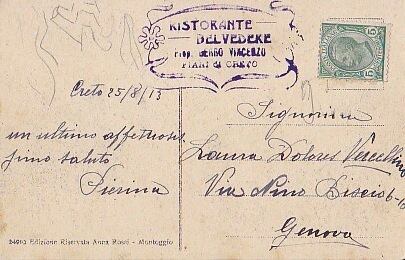 RISTORANTE
BELVEDERE
Prop. BERRO VINCENZO
PIANI di CRETO
Creto 25/8/13
un ultimo affettuosis
simo saluto
Pierina
Signorina
Laura Dolores Vercellino
Via Nino Bixio 6-10
Genova
24910 Edizione Riservata Anna Rossi - Montoggio